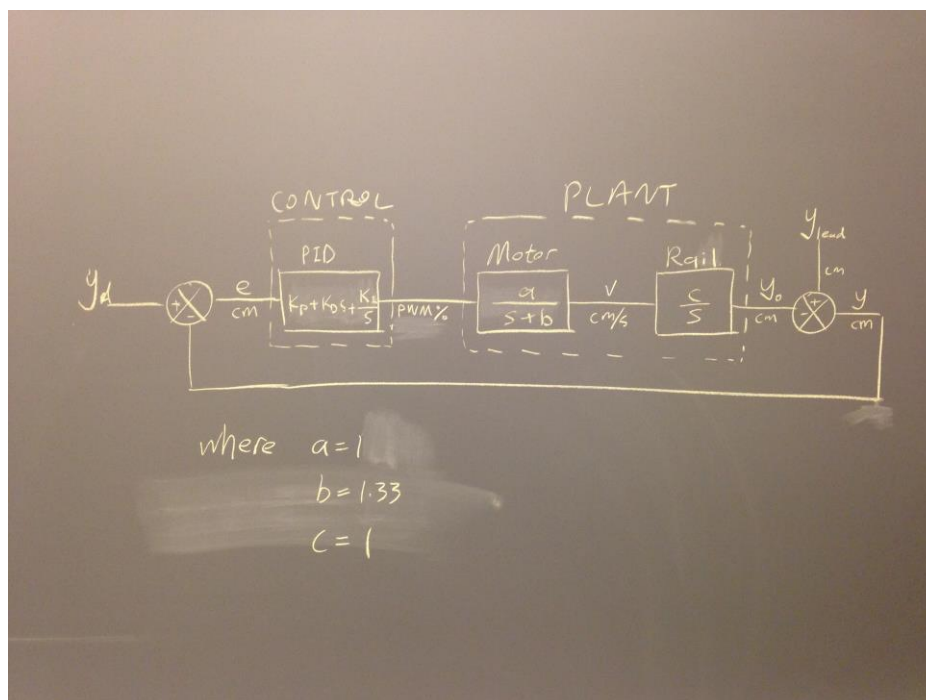 CONTROL
PLANT
PID
Motor
Rail
y_lead
cm
y_d
+
-
e
cm
K_P+K_Ds+K_I/s
PWM%
a/(s+b)
v
cm/s
c/s
y_o
cm
+
-
y
cm
where a=1
b=1.33
c=1